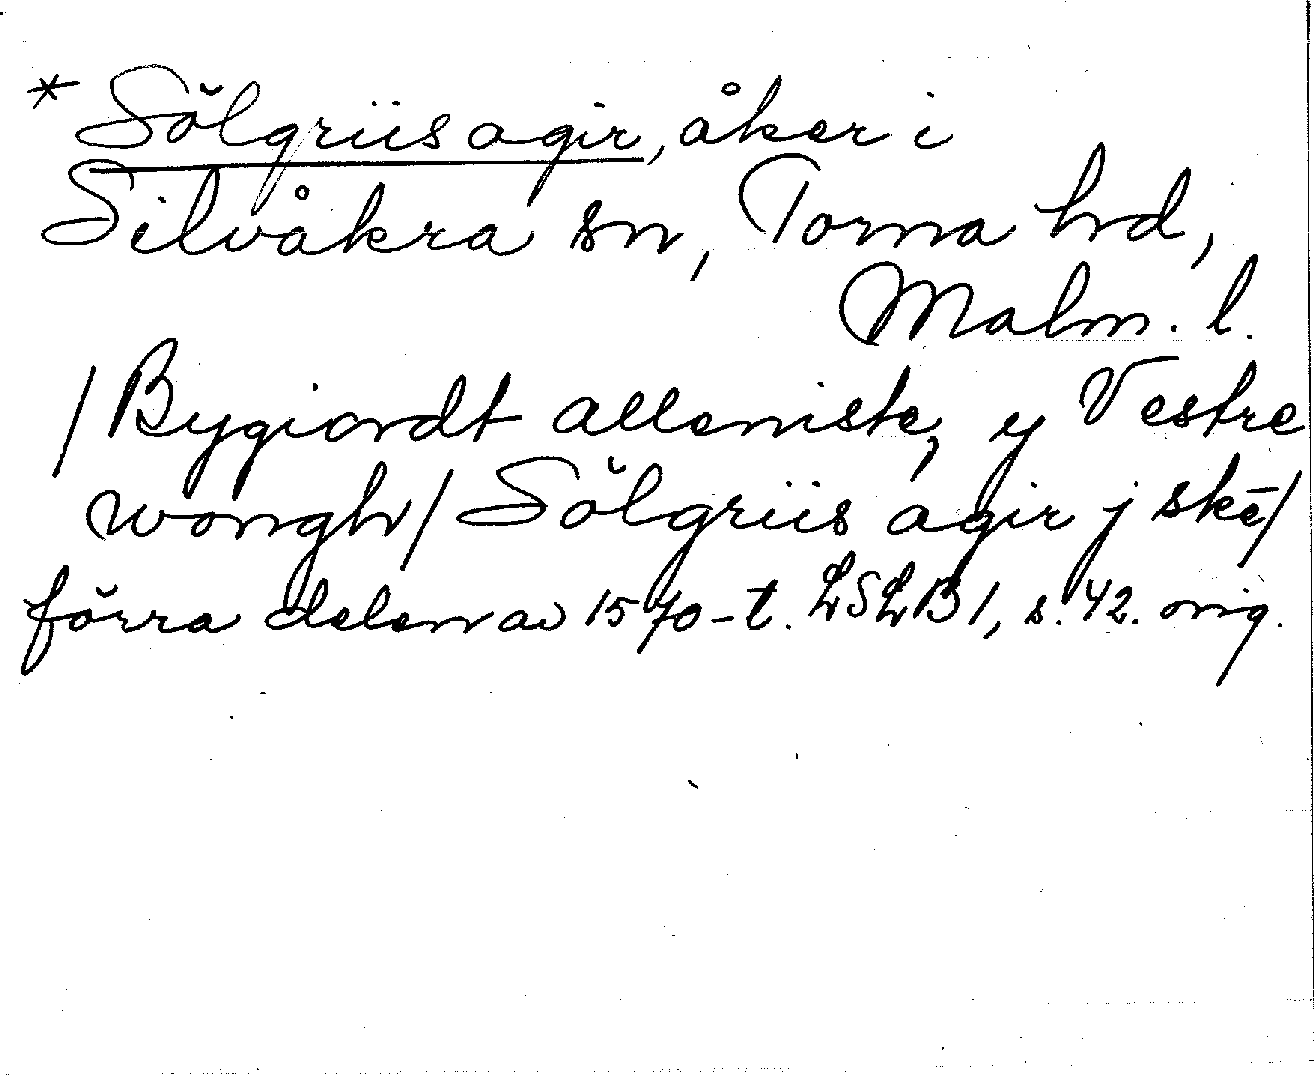 * Sŏlgriis agir, åker i
Silvåkra sn, Torna hd,
Malm. l.
/Bygiordt alleniste, y Vestre
wongh/ Sŏlgriis agir j skē/
förra delen av 1570-t. LSLB 1, s. 42. orig.